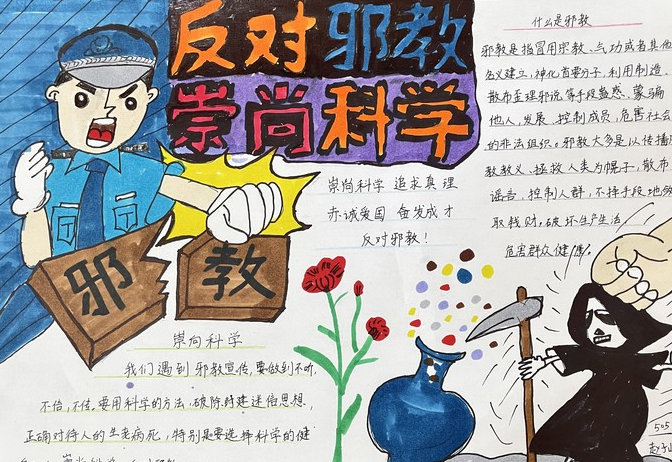 反对邪教
崇尚科学
什么是邪教
邪教是指冒用宗教、气功或者其他
名义建立,神化首要分子,利用制造、
散布歪理邪说等手段蛊惑、蒙骗
他人,发展、控制成员,危害社会
的非法组织。邪教大多是以传播
教教义、拯救人类为幌子,散布
谣言,控制人群,不择手段地
取钱财,破坏生产生活
危害群众健康。
崇尚科学 追求真理
赤诚爱国 奋发成才
反对邪教!
邪
教
崇尚科学
我们遇到邪教宣传,要做到不听,
不信,不传。要用科学的方法,破除封建迷信思想,
正确对待人的生老病死,特别是要选择科学的健
505